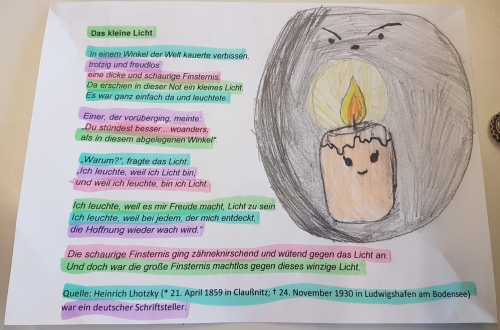 Das kleine Licht
In einem Winkel der Welt kauerte verbissen,
trotzig und freudlos
eine dicke und schaurige Finsternis.
Da erschien in dieser Not ein kleines Licht.
Es war ganz einfach da und leuchtete.
Einer, der vorüberging, meinte:
„Du stündest besser... woanders,
als in diesem abgelegenen Winkel“.
„Warum?“, fragte das Licht.
„Ich leuchte, weil ich Licht bin,
und weil ich leuchte, bin ich Licht.
Ich leuchte, weil es mir Freude macht, Licht zu sein.
Ich leuchte, weil bei jedem, der mich entdeckt,
die Hoffnung wieder wach wird.“
Die schaurige Finsternis ging zähneknirschend und wütend gegen das Licht an.
Und doch war die große Finsternis machtlos gegen dieses winzige Licht.
Quelle: Heinrich Lhotzky (* 21. April 1859 in Claußnitz; † 24. November 1930 in Ludwigshafen am Bodensee)
war ein deutscher Schriftsteller.